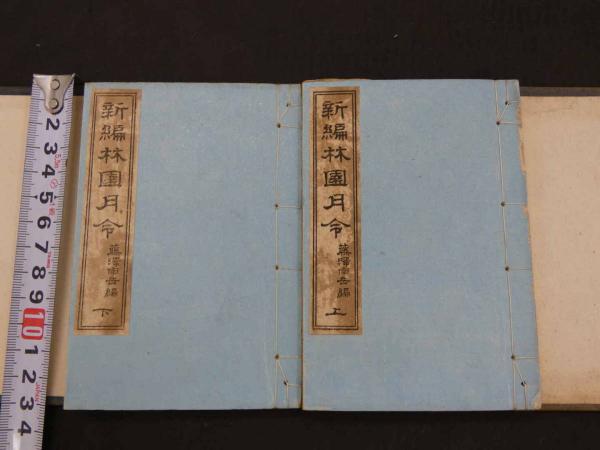 新編林園月令
藤澤南岳編
上
新編林園月令
藤澤南岳編
下
0
2
3
4
5
6
7
8
9
10
1
2
3
4